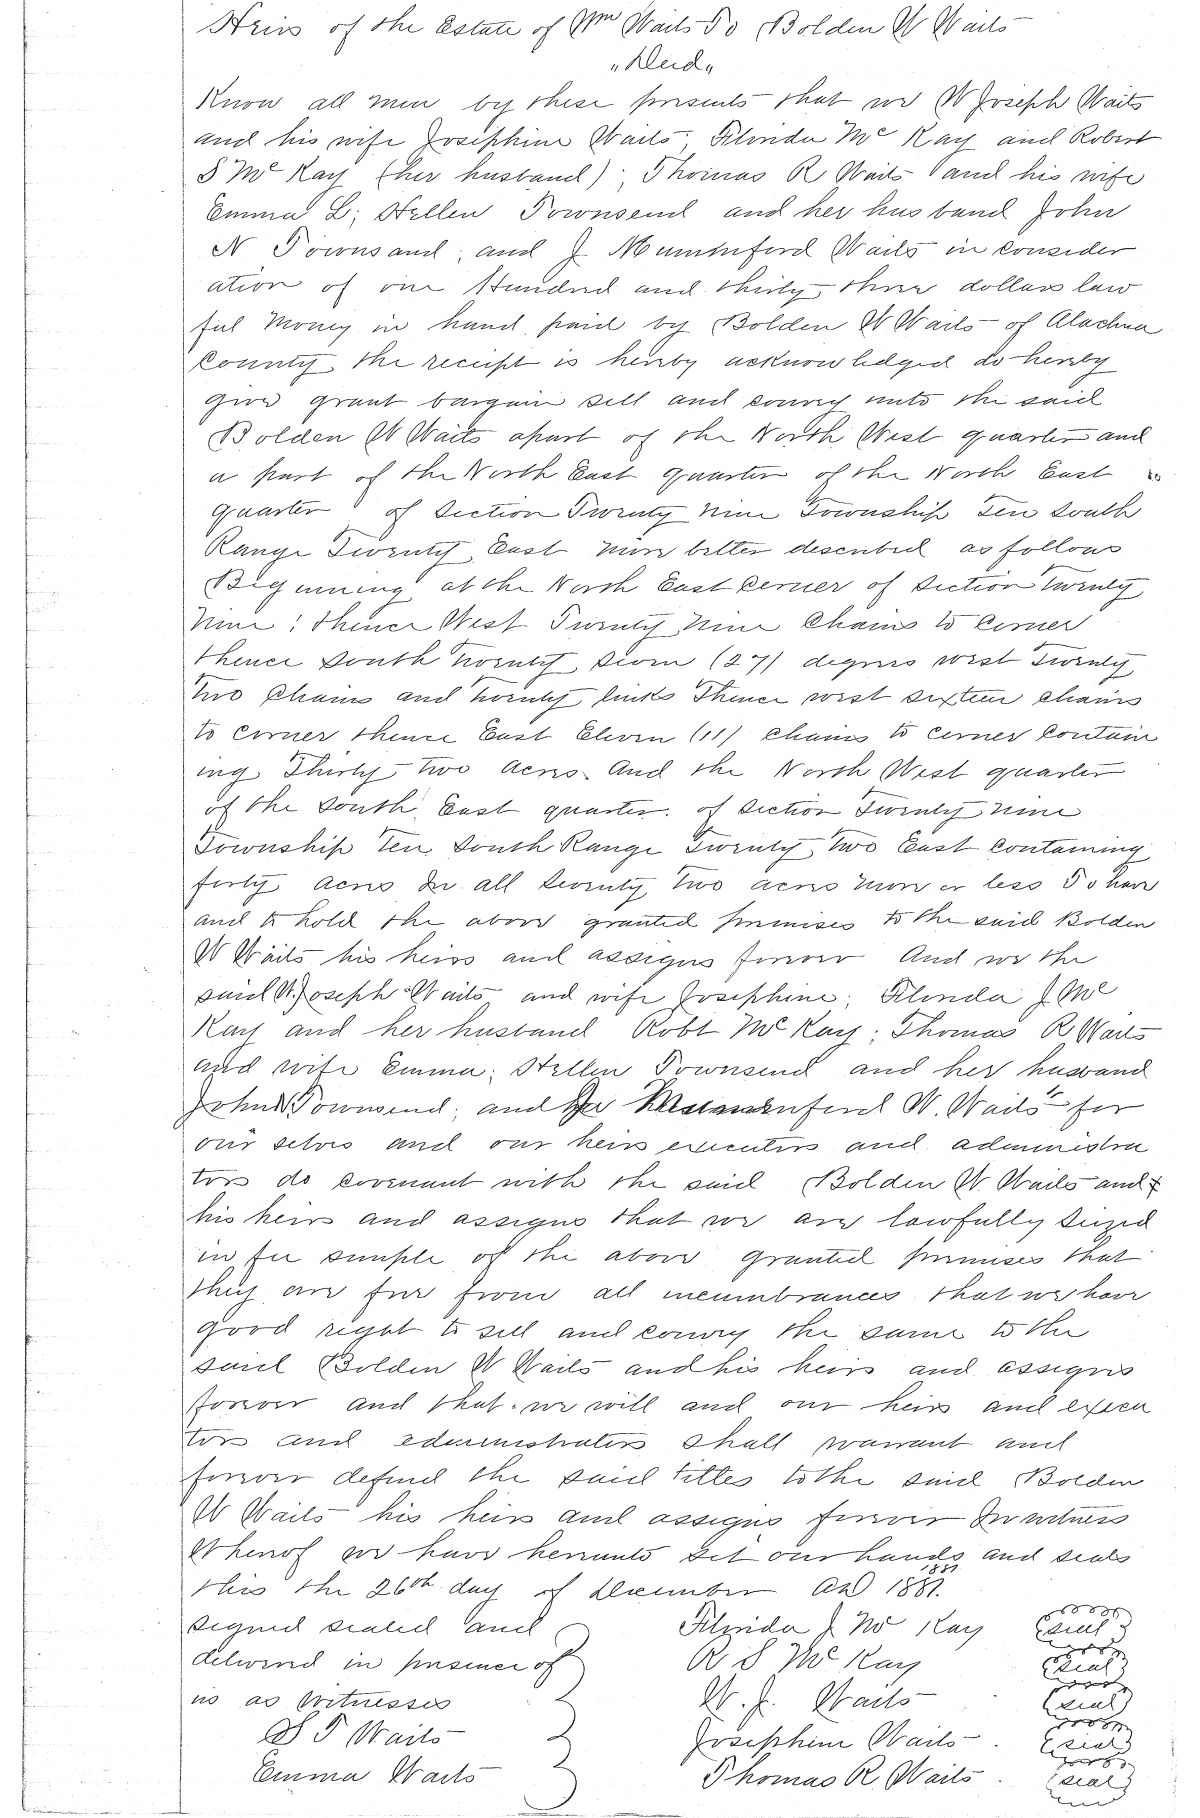 Heirs of the Estate of Wm Waits To Bolden W Waits
"Deed"
Know all men by these presents that we W Joseph Waits
and his wife Josephine Waits; Florida Mc Kay and Robert
S Mc Kay (her husband); Thomas R Waits and his wife
Emma L; Hellen Townsend and her husband John
N Townsand; and J Mummford Waits in consider
ation of one Hundred and thirty three dollars law
ful Money in hand paid by Bolden W Waits of Alachua
County the receipt is hereby acknowledged do hereby
give grant bargain sell and convey unto the said
Bolden W Waits apart of the North West quarter and
a part of the North East quarter of the North East
quarter of Section Twenty nine Township Ten South
Range Twenty East more better described as follows
Beginning at the North East Corner of Section twenty
nine; thence West Twenty Nine Chains to Corner
thence South twenty seven (27) degrees west Twenty
two Chains and twenty links Thence west sixteen chains
to corner thence East Eleven (11) chains to corner contain
ing Thirty two acres. And the North West quarter
of the South East quarter. of Section Twenty nine
Township Ten South Range Twenty two East containing
forty acres In all seventy two acres more or less To have
and to hold the above granted premises to the said Bolden
W Waits his heirs and assigns forever And we the
said W. Joseph Waits and wife Josephine; Florida J Mc
Kay and her husband Robt Mc Kay; Thomas R Waits
and wife Emma; Hellen Townsend and her husband
John N Townsend; and W. Waits for
our selves and our heirs executors and administra
tors do covenant with the said Bolden W Waits and
his heirs and assigns that we are lawfully seized
in fee simple of the above granted premises that
they are free from all incumbrances that we have
good right to sell and convey the same to the
said Bolden W Waits and his heirs and assigns
forever and that we will and our heirs and execu
tors and administrators shall warrant and
forever defend the said titles to the said Bolden
W Waits his heirs and assigns forever In witness
Whereof we have hereunto set our hands and seals
this the 26th day of December AD 1881.
1881
signed sealed and Florida J Mc Kay seal
delivered in presence of R S Mc Kay seal
us as witnesses W. J. Waits seal
S T Waits Josephine Waits. seal
Emma Waits Thomas R Waits. seal